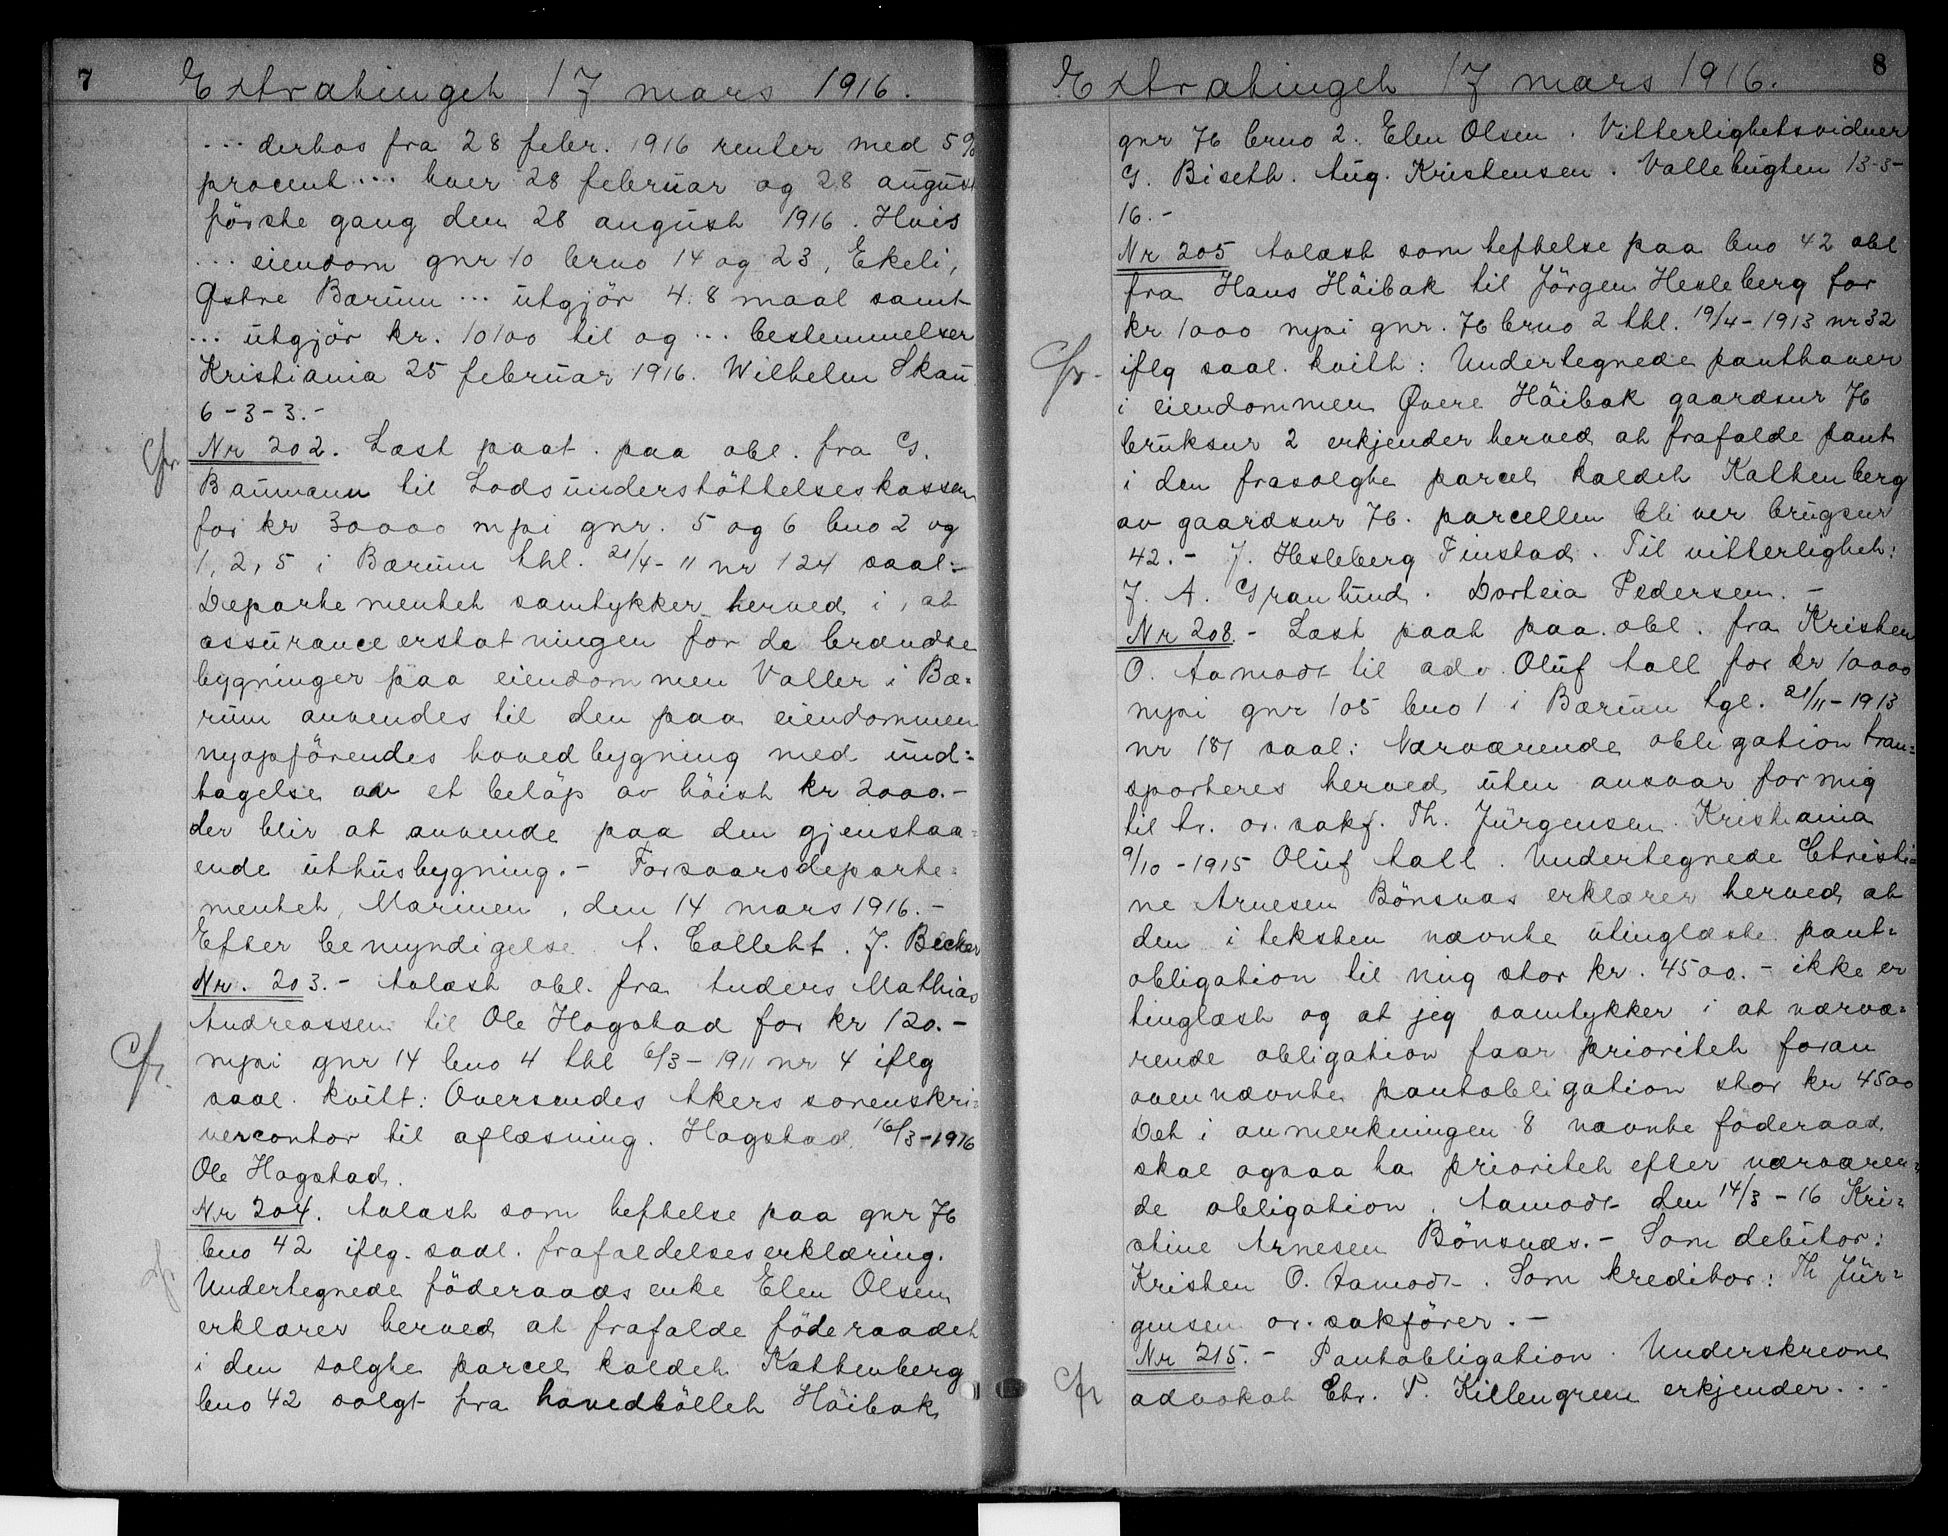 7
Extratinget 17 mars 1916.
... derhos fra 28 febr. 1916 renter med 5%
procent ... hver 28 februar og 28 august
förste gang den 28 august 1916. Hvis
... eiendom gnr 10 brno 14 og 23, Ekeli,
Østre Bærum ... utgjör 4.8 maal samt
... utgjör kr. 10100 til og ... bestemmelser
Kristiania 25 februar 1916. Wilhelm Skau
6-3-3.-
cfr. Nr 202. Læst paat. paa obl. fra G.
Baumann til Lodsunderstöttelseskassen
for kr 30000 mpi gnr. 5 og 6 bno 2 og
1, 2, 5 i Bærum thl. 21/4-11 nr 124 saal:-
Departementet samtykker herved i, at
assuranceerstatningen for de brændte
bygninger paa eiendommen Valler i Bæ=
rum anvendes til den paa eiendommen
nyopförendes hovedbygning med und=
tagelse av et belöp av höist kr 2000.-
der blir at anvende paa den gjenstaa=
ende uthusbygning.- Forsvarsdeparte=
mentet, Marinen, den 14 mars 1916.-
Efter bemyndigelse. A. Collett. J. Becker
Nr. 203.- Avlæst obl. fra Anders Mathias
Andreassen til Ole Hagstad for kr 120.-
cfr. mpi gnr 14 bno 4 thl 6/3-1911 nr 4 iflg
saal. kvitt: Oversendes Akers sorenskri=
vercontor til aflæsning. Hagstad 16/3-1916
Ole Hagstad.
Nr 204. Avlæst som heftelse paa gnr 76
cfr. bno 42 iflg. saal. frafaldelseserklæring.
Undertegnede föderaads enke Elen Olsen
erklærer herved at frafalde föderaadet
i den solgte parcel kaldet Kattenberg
bno 42 solgt fra hovedbölleh Höibak
8
Extratinget 17 mars 1916.
gnr 76 brno 2. Elen Olsen. Vitterlighetsvidner
G. Biseth. Aug. Kristensen. Vallebugten 13-3-
16.-
Nr 205 Avlæst som heftelse paa bno 42 obl
fra Hans Häibak til Jörgen Hesleberg for
kr 1000 mpi gnr. 76 brno 2 thl. 19/4-1913 nr 32
cfr. iflg saal. kvitt: Undertegnede panthaver
i eiendommen Øvere Häibak gaardsnr 76
bruksnr 2 erkjender herved at frafalde pant
i den frasolgte parcel kaldet Kattenberg
av gaardsnr 76. parcellen bliver brugsnr
42.- J. Hesleberg Finstad. Til vitterlighet:
J. A. Granlund. Dorteia Pedersen.-
Nr 208.- Læst paat paa obl. fra Kristen
O. Aamodt til adv. Oluf Aall for kr 10000
mpi gnr 105 bno 1 i Bærum tgl. 21/11-1913
nr 187 saal: Nærværende obligation tran=
sporteres herved uten ansvar for mig
til hr. or. sakf. Th. Jürgensen. Kristiania
9/10-1915 Oluf Aall. Undertegnede Christi=
ne Arnesen Bönsnæs erklærer herved at
den i teksten nævnte utinglæste pant=
obligation til mig stor kr. 4500.- ikke er
tinglæst og at jeg samtykker i at nærvæ=
rende obligation faar prioritet foran
ovennævnte pantobligation stor kr 4500
Det i anmerkningen 8 nævnte föderaad
skal ogsaa ha prioritet efter nærværen=
de obligation. Aamodt den 14/3-16 Kri=
stine Arnesen Bönsnæs.- Som debitor:
Kristen O. Aamodt. Som kreditor: Th Jür=
gensen or. sakförer.-
Nr 215.- Pantobligation. Underskrevne
cfr advokat Chr. P. Killengreen erkjender...